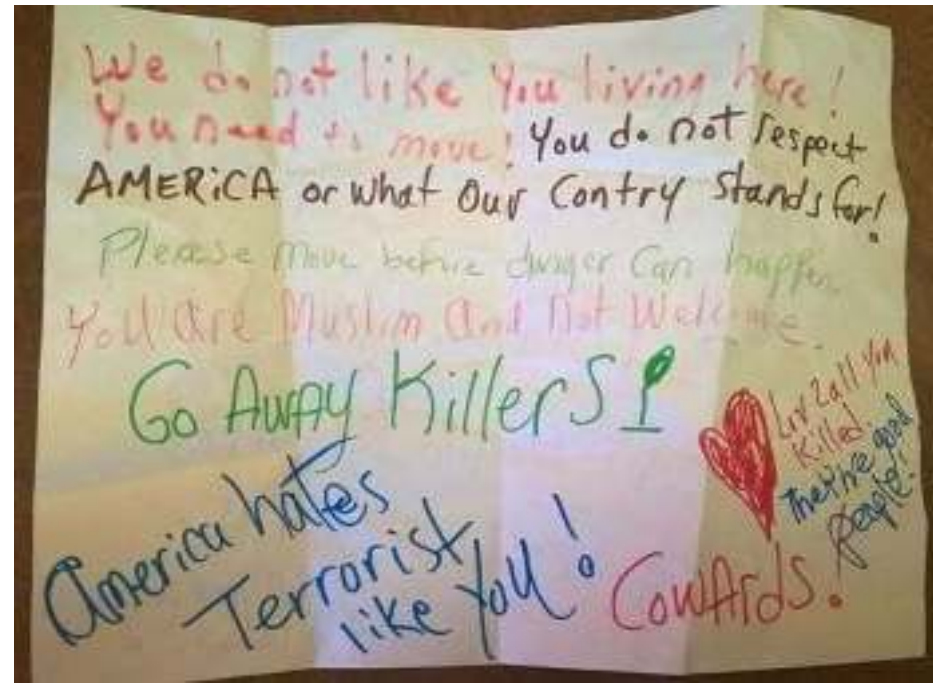 We do not like You living here!
You need to move! You do not respect
AMERiCA or what Our Contry Stands for!
Please Move before danger Can happen
You are Muslim And Not Welcome.
Go AwAy KillerS!
Luv 2 all you
Killed.
good
people!
America hates
Terrorist
like You!
CowArds!